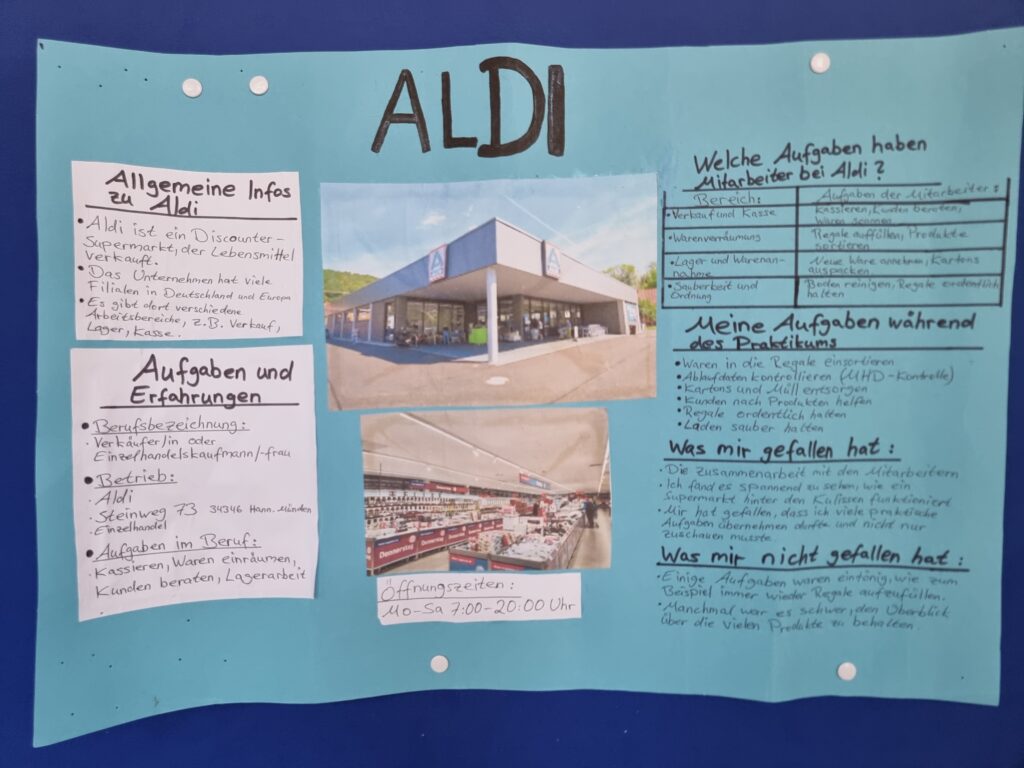 ALDI
Allgemeine Infos
zu Aldi
• Aldi ist ein Discounter-
Supermarkt, der Lebensmittel
verkauft.
• Das Unternehmen hat viele
Filialen in Deutschland und Europa
• Es gibt dort verschiedene
Arbeitsbereiche, z.B. Verkauf,
Lager, Kasse.
Aufgaben und
Erfahrungen
• Berufsbezeichnung:
· Verkäufer/in oder
Einzelhandelskaufmann/-frau
• Betrieb:
· Aldi
· Steinweg 73 34346 Hann. Münden
· Einzelhandel
• Aufgaben im Beruf:
· Kassieren, Waren einräumen,
Kunden beraten, Lagerarbeit
Donnerstag
Donnerstag
Öffnungszeiten:
Mo-Sa 7:00-20:00 Uhr
Welche Aufgaben haben
Mitarbeiter bei Aldi?
Bereich: Aufgaben der Mitarbeiter:
• Verkauf und Kasse Kassieren, Kunden beraten,
Waren scannen
• Warenverräumung Regale auffüllen, Produkte
sortieren
• Lager und Warenan- Neue Ware annehmen, Kartons
nahme auspacken
• Sauberkeit und Boden reinigen, Regale ordentlich
Ordnung halten
Meine Aufgaben während
des Praktikums
• Waren in die Regale einsortieren
• Ablaufdaten kontrollieren (MHD-Kontrolle)
• Kartons und Müll entsorgen
• Kunden nach Produkten helfen
• Regale ordentlich halten
• Laden sauber halten
Was mir gefallen hat:
• Die Zusammenarbeit mit den Mitarbeitern
• Ich fand es spannend zu sehen, wie ein
Supermarkt hinter den Kulissen funktioniert
• Mir hat gefallen, dass ich viele praktische
Aufgaben übernehmen durfte und nicht nur
zuschauen musste.
Was mir nicht gefallen hat:
• Einige Aufgaben waren eintönig, wie zum
Beispiel immer wieder Regale aufzufüllen.
• Manchmal war es schwer, den Überblick
über die vielen Produkte zu behalten.